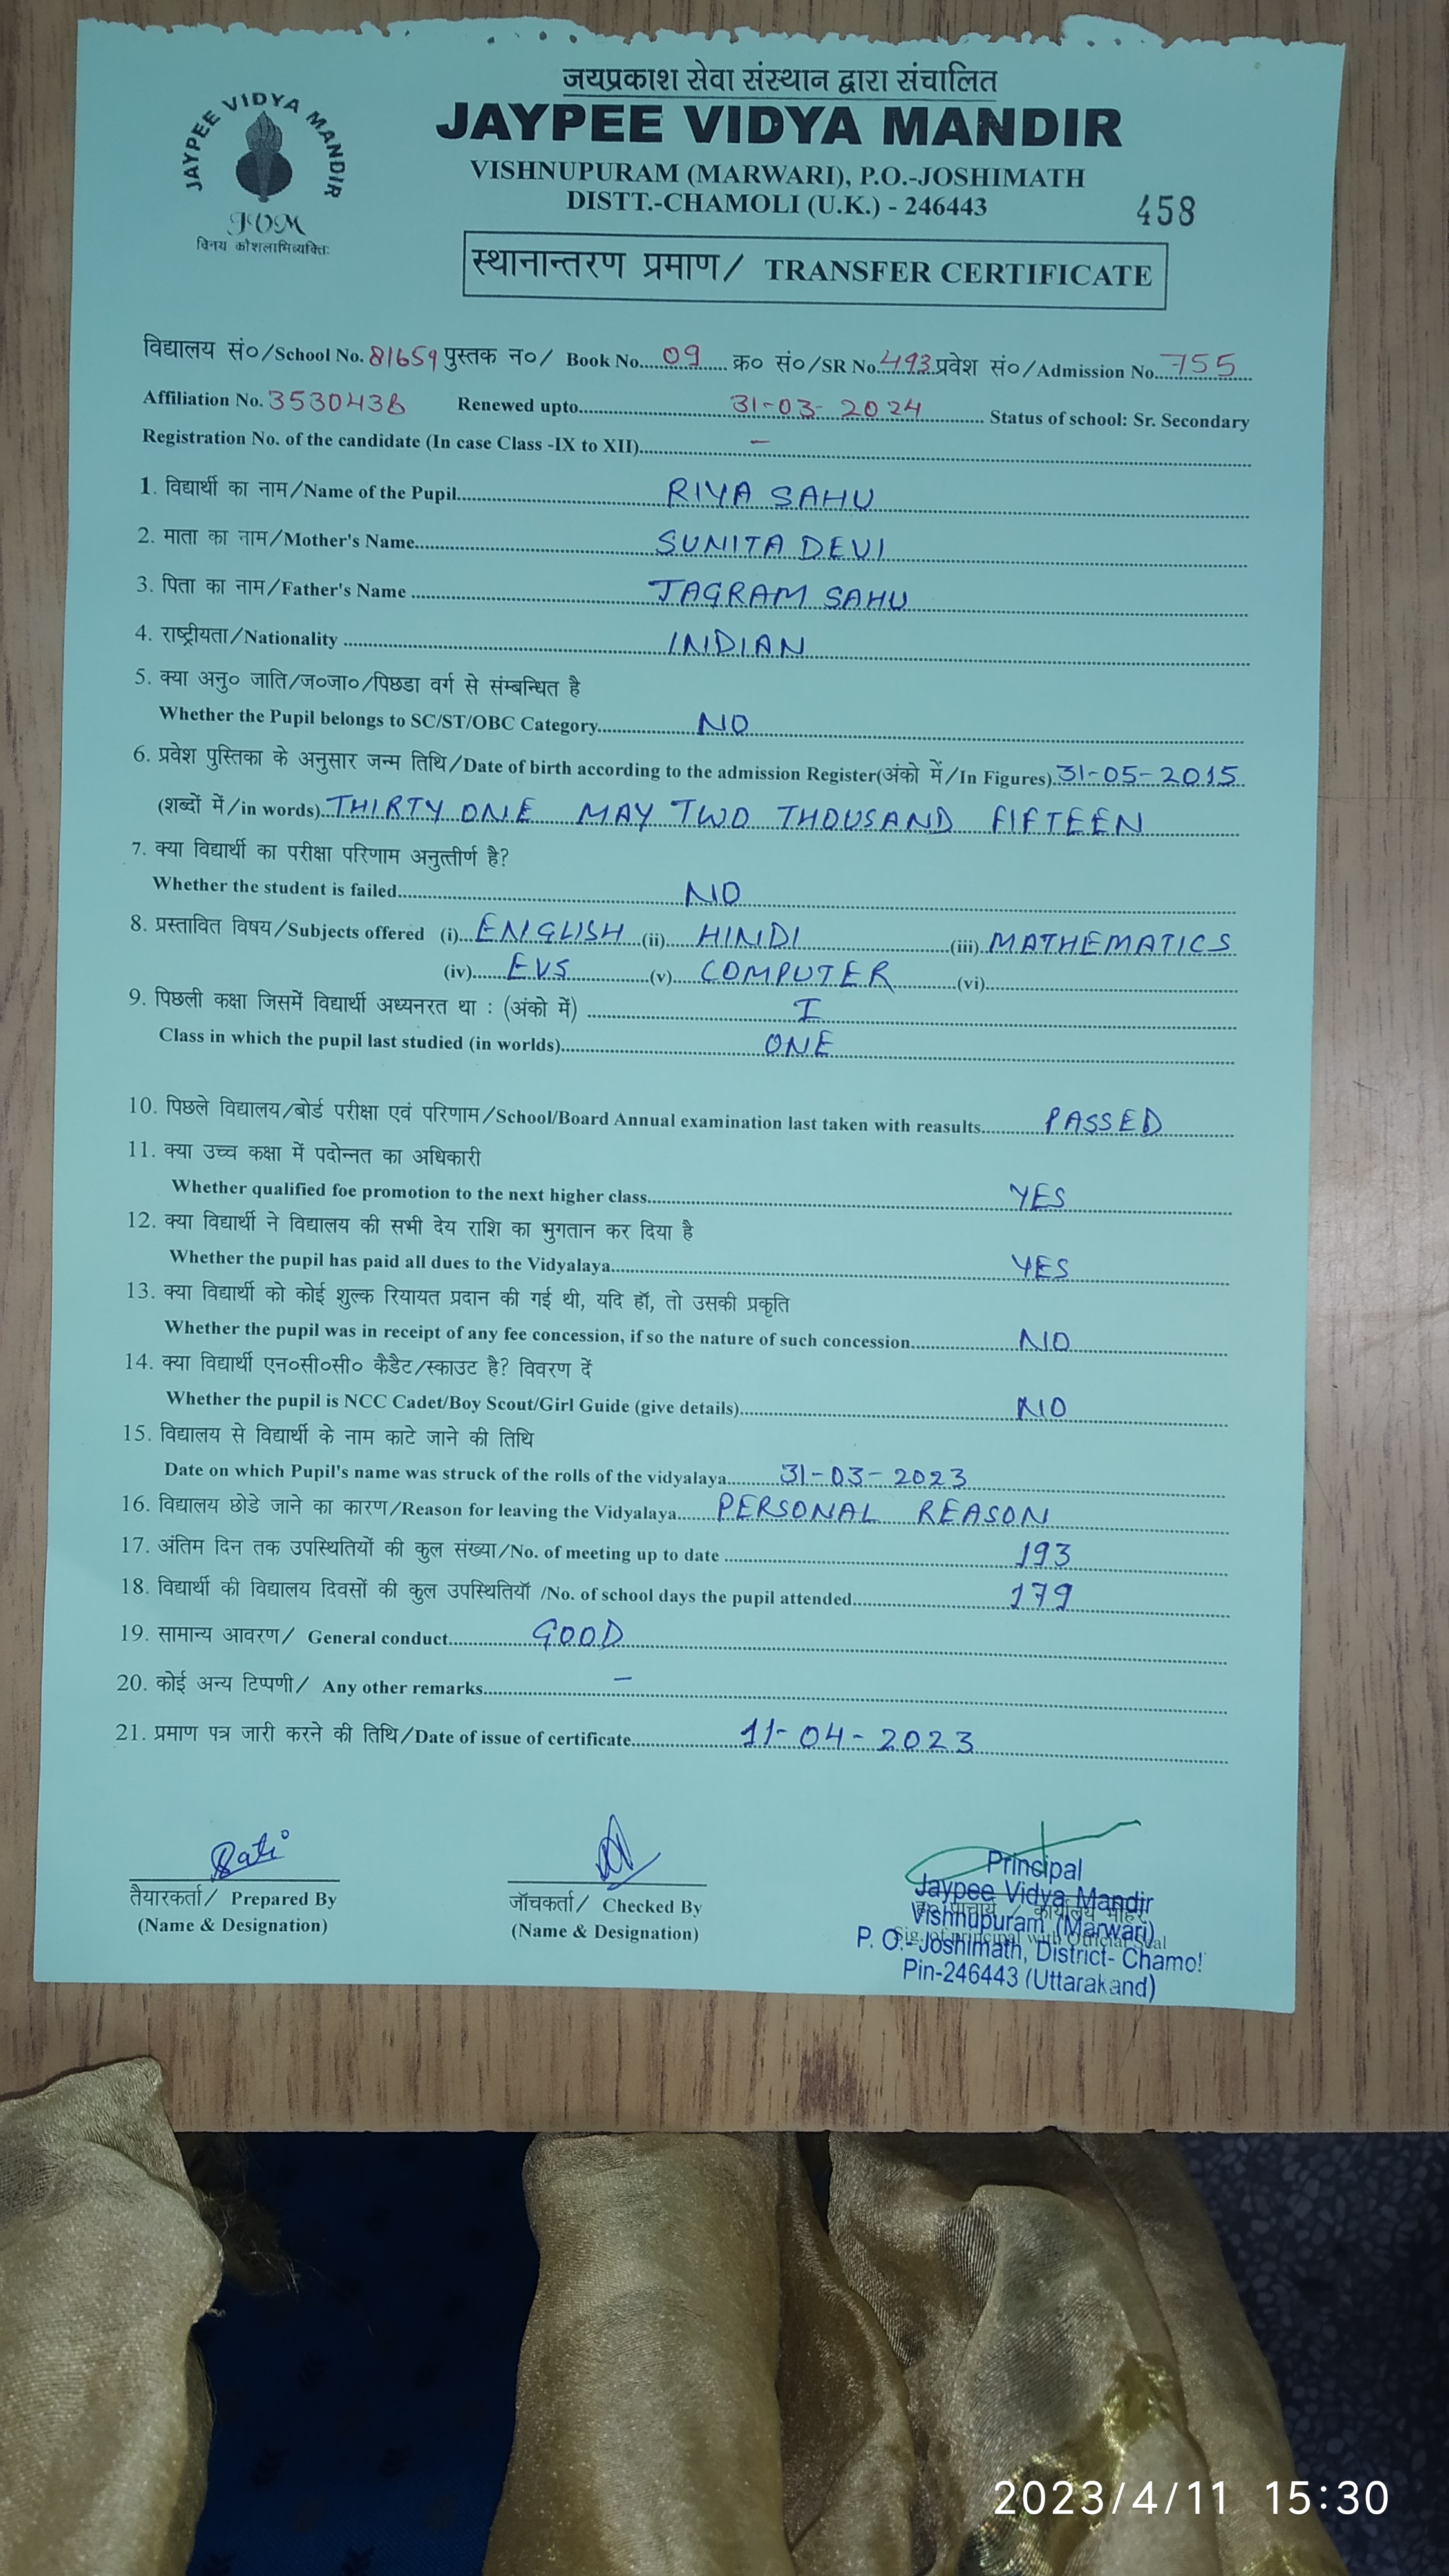 जयप्रकाश सेवा संस्थान द्वारा संचालित
JAYPEE VIDYA MANDIR
JAYPEE VIDYA MANDIR
VISHNUPURAM (MARWARI), P.O.-JOSHIMATH
DISTT.-CHAMOLI (U.K.) - 246443
458
विनय कौशलाभिव्यक्तिः
स्थानान्तरण प्रमाण/ TRANSFER CERTIFICATE
विद्यालय सं०/School No. 81659 पुस्तक न०/ Book No. 09 क्र० सं०/SR No. 493 प्रवेश सं०/Admission No. 755
Affiliation No. 3530438 Renewed upto 31-03-2024 Status of school: Sr. Secondary
Registration No. of the candidate (In case Class -IX to XII) –
1. विद्यार्थी का नाम/Name of the Pupil RIYA SAHU
2. माता का नाम/Mother's Name SUNITA DEVI
3. पिता का नाम/Father's Name JAGRAM SAHU
4. राष्ट्रीयता/Nationality INDIAN
5. क्या अनु० जाति/ज०जा०/पिछडा वर्ग से संम्बन्धित है
Whether the Pupil belongs to SC/ST/OBC Category NO
6. प्रवेश पुस्तिका के अनुसार जन्म तिथि/Date of birth according to the admission Register(अंको में/In Figures) 31-05-2015
(शब्दों में/in words) THIRTY ONE MAY TWO THOUSAND FIFTEEN
7. क्या विद्यार्थी का परीक्षा परिणाम अनुत्तीर्ण है?
Whether the student is failed NO
8. प्रस्तावित विषय/Subjects offered (i) ENGLISH (ii) HINDI (iii) MATHEMATICS
(iv) EVS (v) COMPUTER (vi)
9. पिछली कक्षा जिसमें विद्यार्थी अध्यनरत था : (अंको में) I
Class in which the pupil last studied (in worlds) ONE
10. पिछले विद्यालय/बोर्ड परीक्षा एवं परिणाम/School/Board Annual examination last taken with reasults PASSED
11. क्या उच्च कक्षा में पदोन्नत का अधिकारी
Whether qualified foe promotion to the next higher class YES
12. क्या विद्यार्थी ने विद्यालय की सभी देय राशि का भुगतान कर दिया है
Whether the pupil has paid all dues to the Vidyalaya YES
13. क्या विद्यार्थी को कोई शुल्क रियायत प्रदान की गई थी, यदि हॉ, तो उसकी प्रकृति
Whether the pupil was in receipt of any fee concession, if so the nature of such concession NO
14. क्या विद्यार्थी एन०सी०सी० कैडैट/स्काउट है? विवरण दें
Whether the pupil is NCC Cadet/Boy Scout/Girl Guide (give details) NO
15. विद्यालय से विद्यार्थी के नाम काटे जाने की तिथि
Date on which Pupil's name was struck of the rolls of the vidyalaya 31-03-2023
16. विद्यालय छोडे जाने का कारण/Reason for leaving the Vidyalaya PERSONAL REASON
17. अंतिम दिन तक उपस्थितियों की कुल संख्या/No. of meeting up to date 193
18. विद्यार्थी की विद्यालय दिवसों की कुल उपस्थितियॉ /No. of school days the pupil attended 179
19. सामान्य आवरण/ General conduct GOOD
20. कोई अन्य टिप्पणी/ Any other remarks –
21. प्रमाण पत्र जारी करने की तिथि/Date of issue of certificate 11-04-2023
तैयारकर्ता/ Prepared By
(Name & Designation)
जॉचकर्ता/ Checked By
(Name & Designation)
Principal
Jaypee Vidya Mandir
Vishnupuram (Marwari)
P. O.-Joshimath, District- Chamo!
Pin-246443 (Uttarakand)
Sig. of principal with Official Seal
2023/4/11 15:30